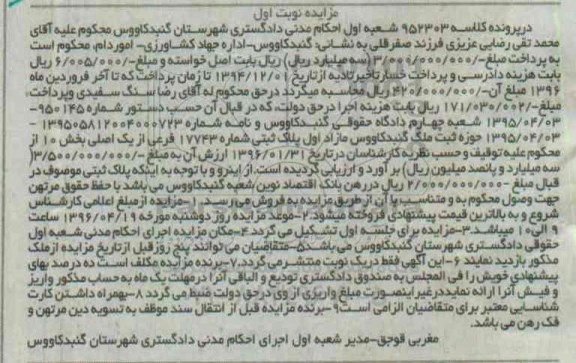 مزایده نوبت اول
درپرونده کلاسه ۹۵۲۳۰۳ شعبه اول احکام مدنی دادگستری شهرستان گنبدکاووس محکوم علیه آقای
محمد تقی رضایی عزیزی فرزند صفرقلی به نشانی: گنبدکاووس-اداره جهاد کشاورزی- اموردام، محکوم است
به پرداخت مبلغ ۳/۰۰۰/۰۰۰/۰۰۰ (سه میلیارد ریال) ریال بابت اصل خواسته و مبلغ ۶/۰۰۵/۰۰۰ ریال
بابت هزینه دادرسی و پرداخت خسارتاخیرتادیه ازتاریخ ۱۳۹۴/۱۲/۰۱ تا زمان پرداخت که تا آخر فروردین ماه
۱۳۹۶ مبلغ آن ۴۲۰/۰۰۰/۰۰۰ ریال محاسبه میگردد درحق محکوم له آقای رضا سنگ سفیدی وپرداخت
مبلغ ۱۷۱/۰۳۰/۰۰۲ ریال بابت هزینه اجرا درحق دولت، که در قبال آن حسب دستور شماره ۹۵۰۱۴۵-
۱۳۹۵/۰۴/۰۳ شعبه چهارم دادگاه حقوقی گنبدکاووس و نامه شماره ۱۳۹۵۰۵۸۱۲۰۰۴۰۰۰۷۲۳-
۱۳۹۵/۰۴/۰۳ حوزه ثبت ملک گنبدکاووس مازاد اول پلاک ثبتی شماره ۱۷۷۴۳ فرعی از یک اصلی بخش ۱۰ از
محکوم علیه توقیف و حسب نظریه کارشناسان درتاریخ ۱۳۹۶/۰۱/۳۱ ارزش آن به مبلغ ۳/۵۰۰/۰۰۰/۰۰۰(
سه میلیارد و پانصد میلیون ریال) بر آورد و ارزیابی گردیده است. از اینرو و با توجه به اینکه پلاک ثبتی موصوف در
قبال مبلغ ۲/۰۰۰/۰۰۰/۰۰۰ ریال دررهن بانک اقتصاد نوین شعبه گنبدکاووس می باشد با حفظ حقوق مرتهن
جهت وصول محکوم به و متناسب با آن از طریق مزایده به فروش می رسد. ۱-مزایده ازمبلغ اعلامی کارشناس
شروع و به بالاترین قیمت پیشنهادی فروخته میشود.۲-موعد مزایده روز دوشنبه مورخه ۱۳۹۶/۰۴/۱۹ ساعت
۹ الی ۱۰ میباشد.۳-مزایده برای جلسه اول تشکیل می گردد.۴-مکان مزایده اجرای احکام مدنی شعبه اول
حقوقی دادگستری شهرستان گنبدکاووس می باشد۵-متقاضیان می توانند پنج روز قبل ازتاریخ مزایده ازملک
مذکور بازدید نمایند ۶-این آگهی فقط دریک نوبت منتشرمی گردد.۷-برنده مزایده مکلف است ده درصد بهای
پیشنهادی خویش را فی المجلس به صندوق دادگستری تودیع و الباقی آنرا درمهلت یک ماه به حساب مذکور واریز
و فیش آنرا ارائه نمایددرغیراینصورت مبلغ واریزی از وی درحق دولت ضبط می گردد ۸-بهمراه داشتن کارت
شناسایی معتبر برای متقاضیان الزامی است۹-برنده مزایده قبل از انتقال سند موظف به تسویه دین مرتهن و
فک رهن می باشد.
مغربی قوجق-مدیر شعبه اول اجرای احکام مدنی دادگستری شهرستان گنبدکاووس